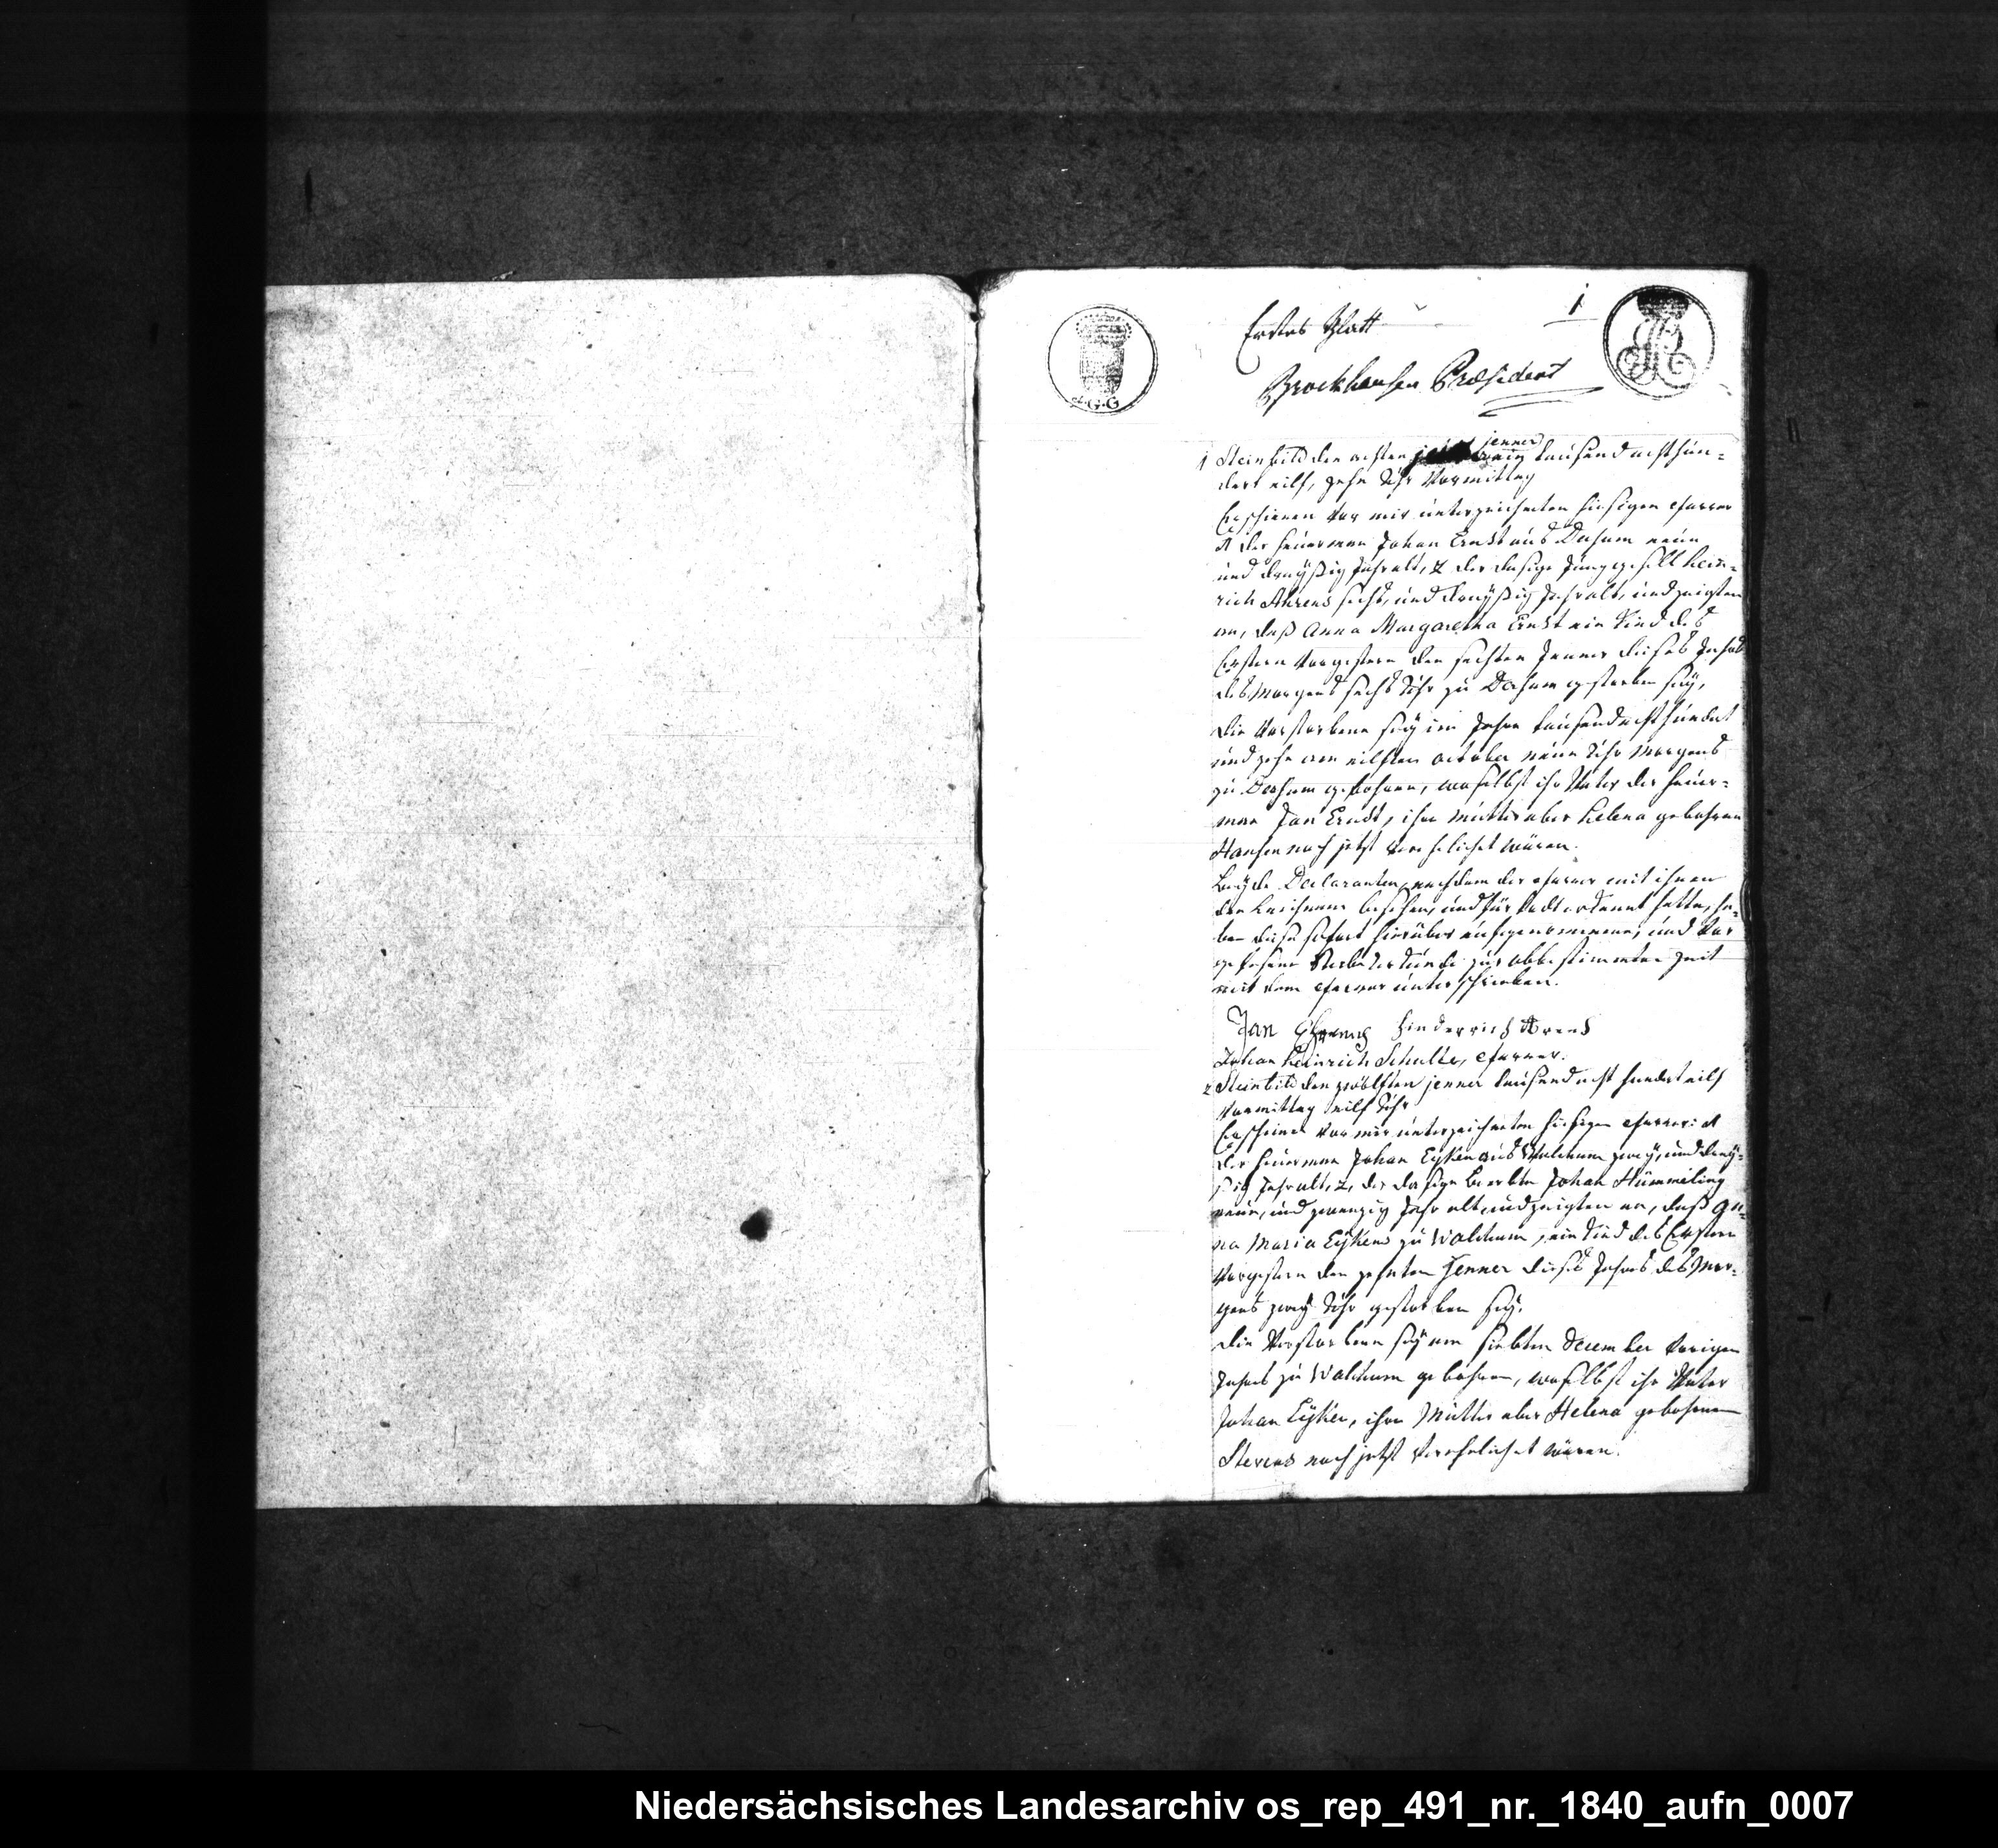 1
Erstes Blatt
Brockhausen Præsident
G.G
jenner
1 Steinbild den achten tausend acht hun=
dert eilf, zehn Uhr Vormittag
Erschienen vor mir unterzeichneten hiesigen Pfarrer
der Heuerman Johan Ernst aus Dahum neun
und dreyßig Jahr alt, 2 der dasige Junggesell Hein=
rich Ahrens sechs, und dreyßig Jahr alt, und zeigten
an, daß Anna Margaretha Ernst ein Kind des
Erstern vorgestern den sechsten Jenner dieses Jahrs
des Morgens sechs Uhr zu Dahum gestorben sey,
die Verstorbene sey im Jahre tausend acht hundert
und zehn am eilften October neun Uhr Morgens
zu Dahum gebohren, woselbst ihr Vater der Heuer=
man Jan Ernst, ihre Mutter aber Helena gebohrne
Hansen noch jetzt verehelichet wären.
Beyde Declaranten, nachdem der Pfarrer mit ihnen
den Leichnam besehen, und für todt erkannt hatte, ha=
ben diese sofort hierüber aufgenommene, und vor
gelesene Sterbeurkunde zur obbestimmten Zeit
mit dem Pfarrer unterschrieben.
Jan Hinderrich Arens
Johan Heinrich Schulte, Pfarrer.
2 Steinbild den zwölften jenner tausend acht hundert eilf
Vormittag eilf Uhr
Erschienen vor mir unterzeichneten hiesigen Pfarrer: 1
der Heuerman Johan Eyken aus Walchum zwey, und drey=
ßig Jahr alt, 2, der dasige Beerbte Johan Hümmeling
neun, und zwanzig Jahr alt und zeigten an, daß An=
na Maria Eykens zu Walchum, ein Kind des Erstern
Vorgestern den zehnten Jenner dieses Jahrs des Mor=
gens zwey Uhr gestorben sey.
die Verstorbene sey am siebten December vorigen
Jahrs zu Walchum gebohren, woselbst ihr Vater
Johan Eyken, ihre Mutter aber Helena gebohrne
Stevens noch jetzt verehelichet wären.
Niedersächsisches Landesarchiv os_rep_491_nr._1840_aufn_0007